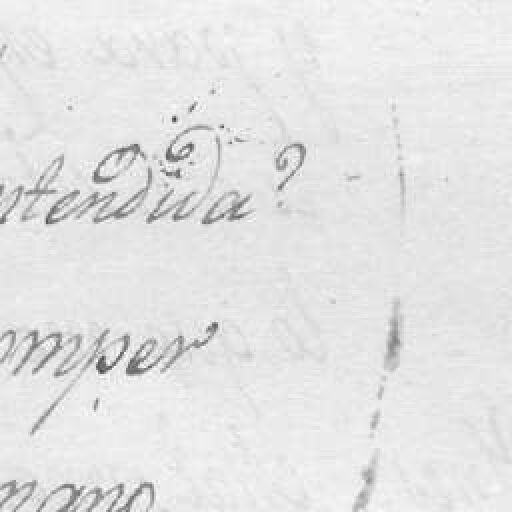 ntendida?
omper
mano